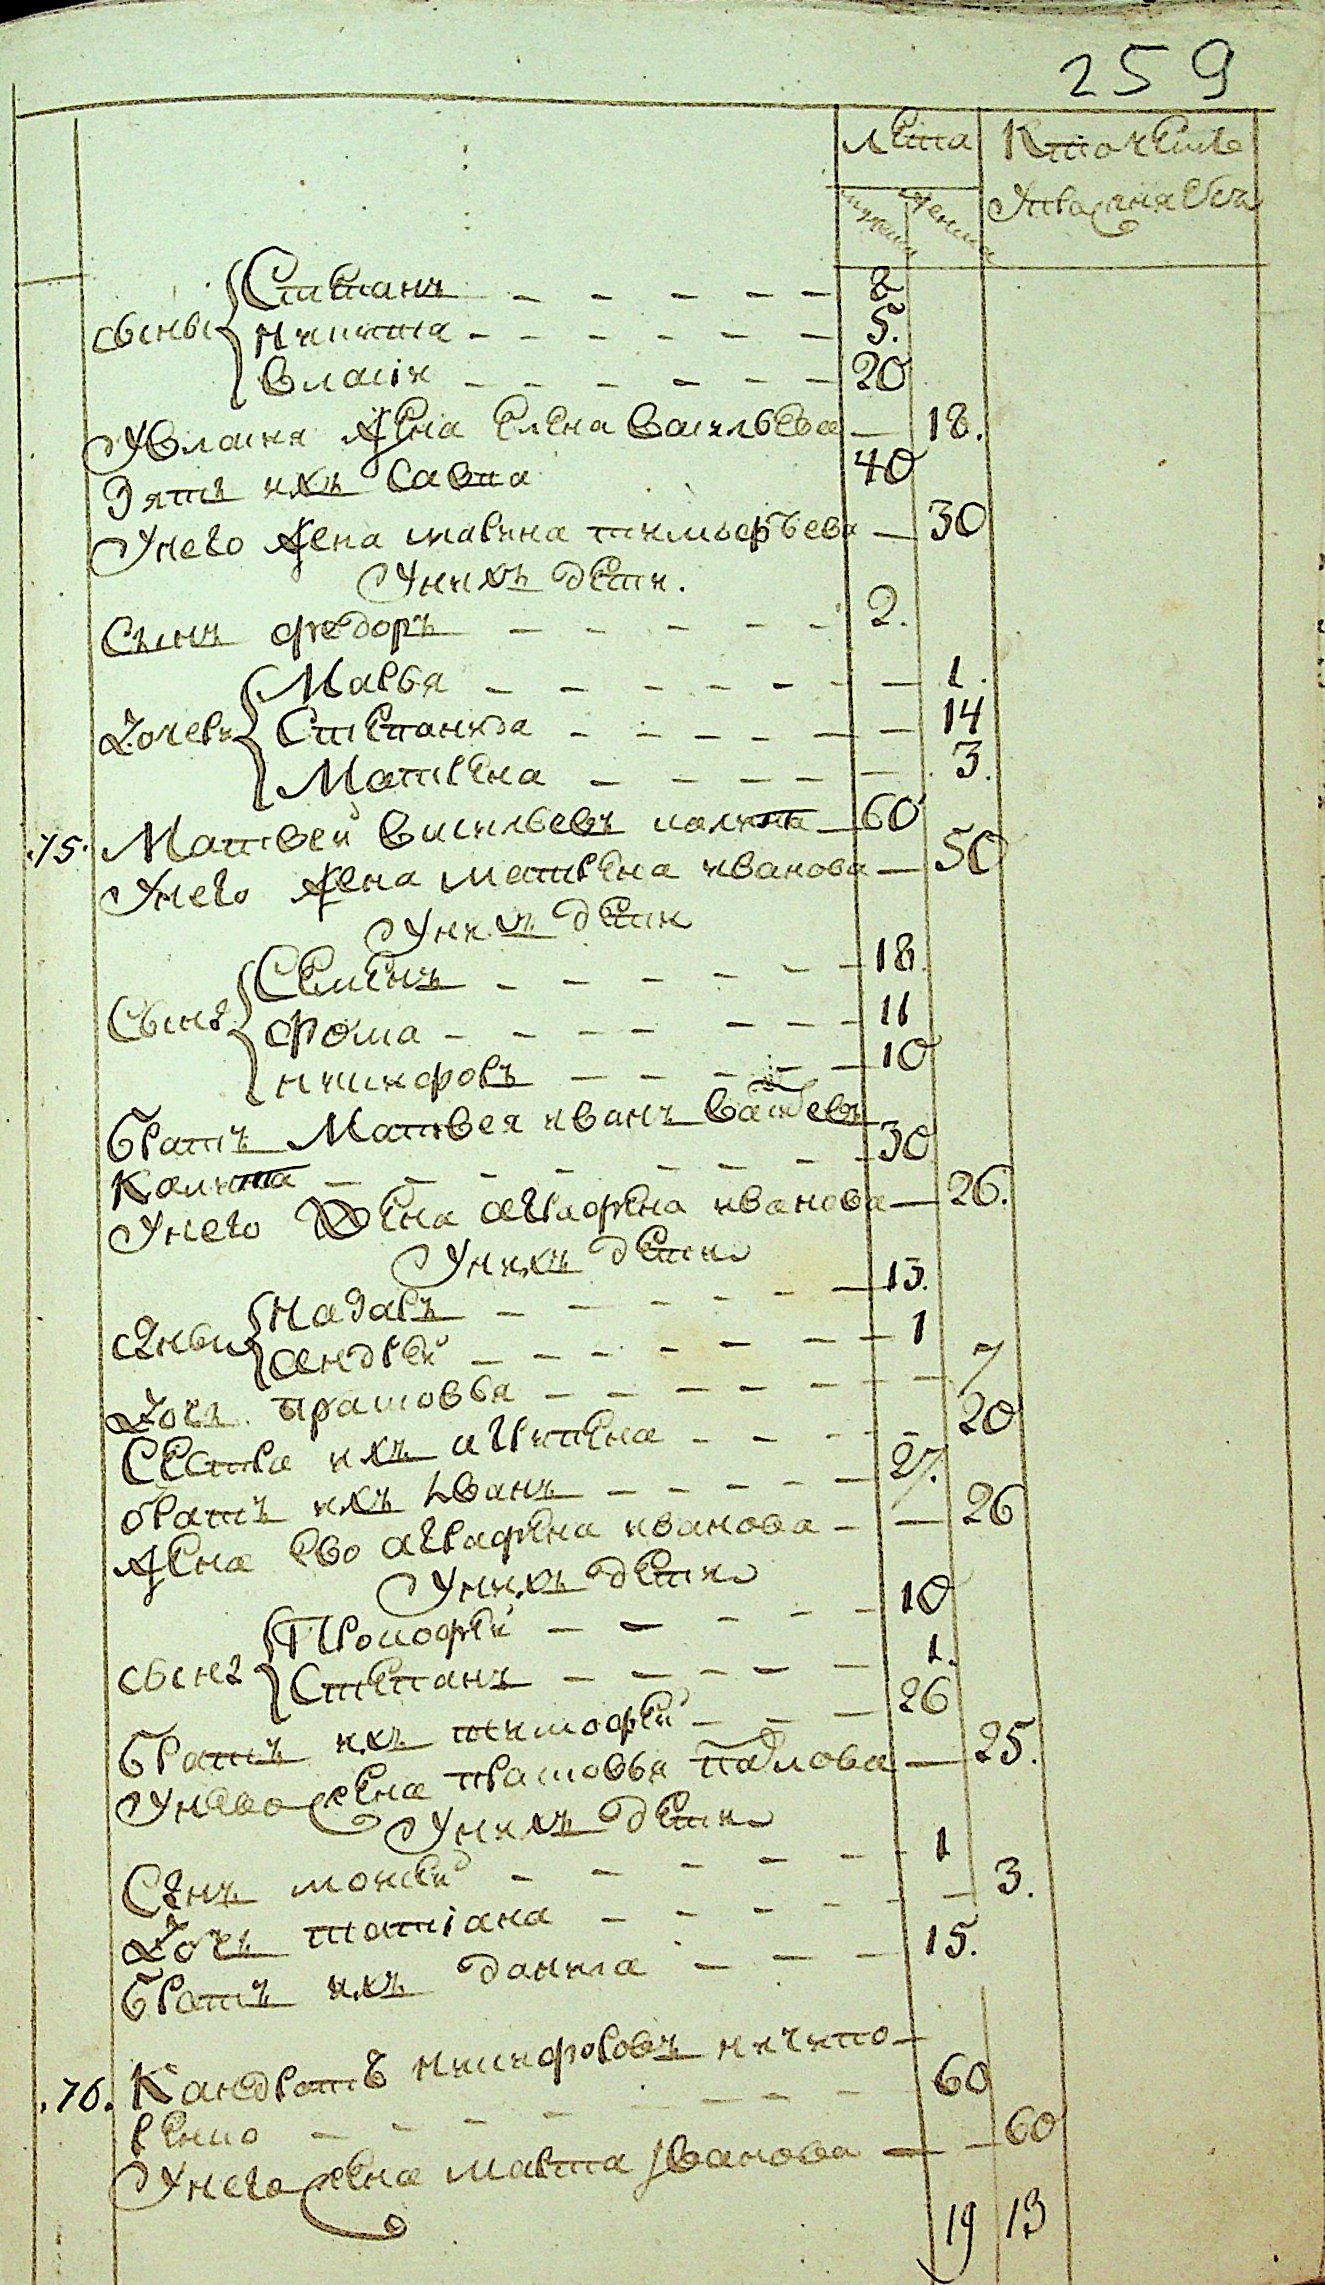 259
лета
мужеск женска
сыны Стпанъ 8
никита 5.
власiи 20
Увласия жена елена васильева 18.
Зять ихъ Савка 40
Унего жена марина тимофѣева 30
Унихъ дети.
Сынъ федоръ 2.
Дочери Марья 1.
Степанида 14
Матрена 3.
75. Матвей Васильевъ калита 60
Унего жена матрена иванова 50
Унихъ дети
Сынѣ Семенъ 18
фома 11
никифоръ 10
Братъ Матвея иванъ Василевъ
Калита 30
Унего жена аграфена иванова 26.
Унихъ дети
сыны Назаръ 13.
андреи 1
Дочь прасковья 7
Сестра ихъ агрипена 20
братъ ихъ Иванъ 27.
Жена ево аграфена иванова 26
Унихъ дети
сынѣ Прокофеи 10
Степанъ 1.
Братъ ихъ тимофеи 26
Унево жена прасковья павлова 25.
Унихъ дети
Сынъ мокеи 1
Дочь татiана 3.
Братъ ихъ данила 15.
76. Кандратъ никифоровъ нечипо-
ренко 60
Унего жена марта Иванова 60
19 13